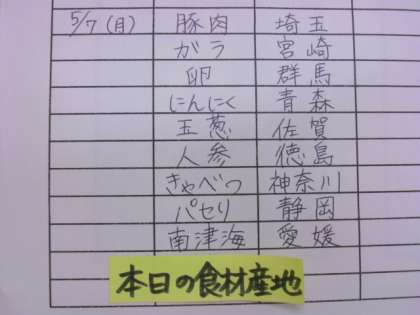 5/7(月) 豚肉 埼玉
ガラ 宮崎
卵 群馬
にんにく 青森
玉葱 佐賀
人参 徳島
きゃべつ 神奈川
パセリ 静岡
南津海 愛媛
本日の食材産地